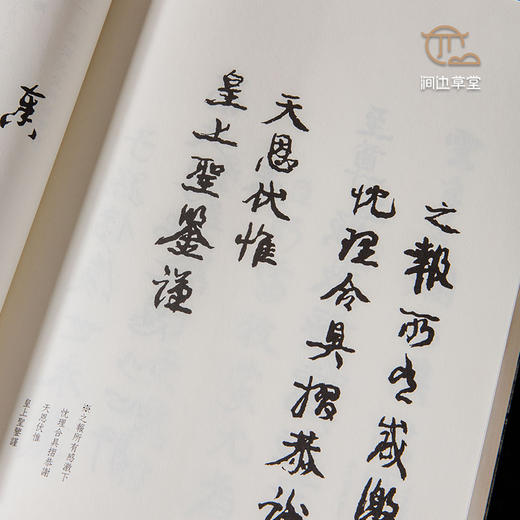 之報所有感激
忱理合具摺恭謝
天恩伏惟
皇上聖鑒謹
奏
※之報所有感激下
忱理合具摺恭謝
天恩伏惟
皇上聖鑒謹
涧边草堂